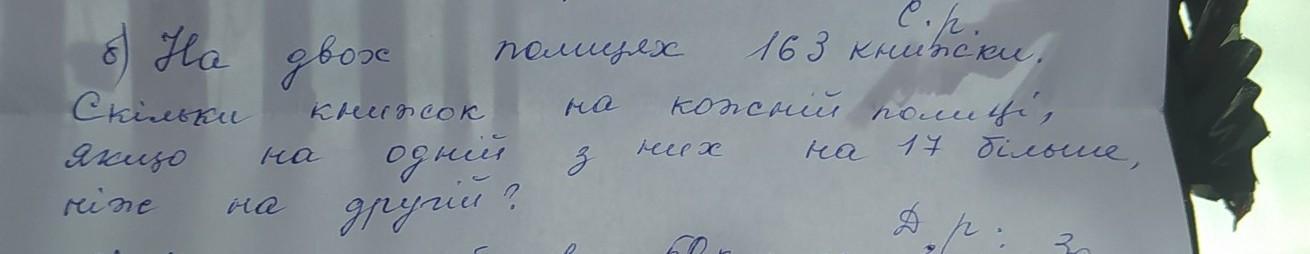 С. р.
б) На двох полицях 163 книжки.
Скільки книжок на кожній полиці,
якщо на одній з них на 17 більше,
ніж на другій?
Д. р: